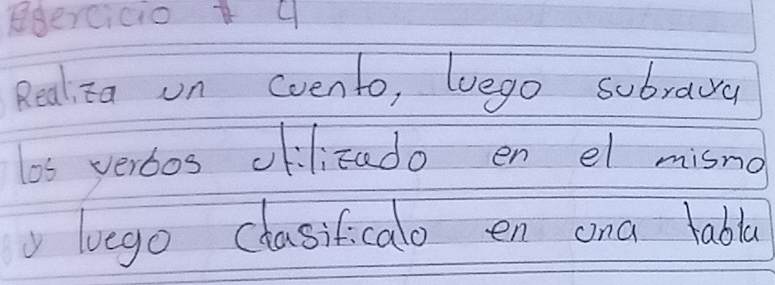 Ejercicio # 4
Realiza un cuento, luego subraya
los verbos utilizado en el mismo
y luego clasificalo en una tabla